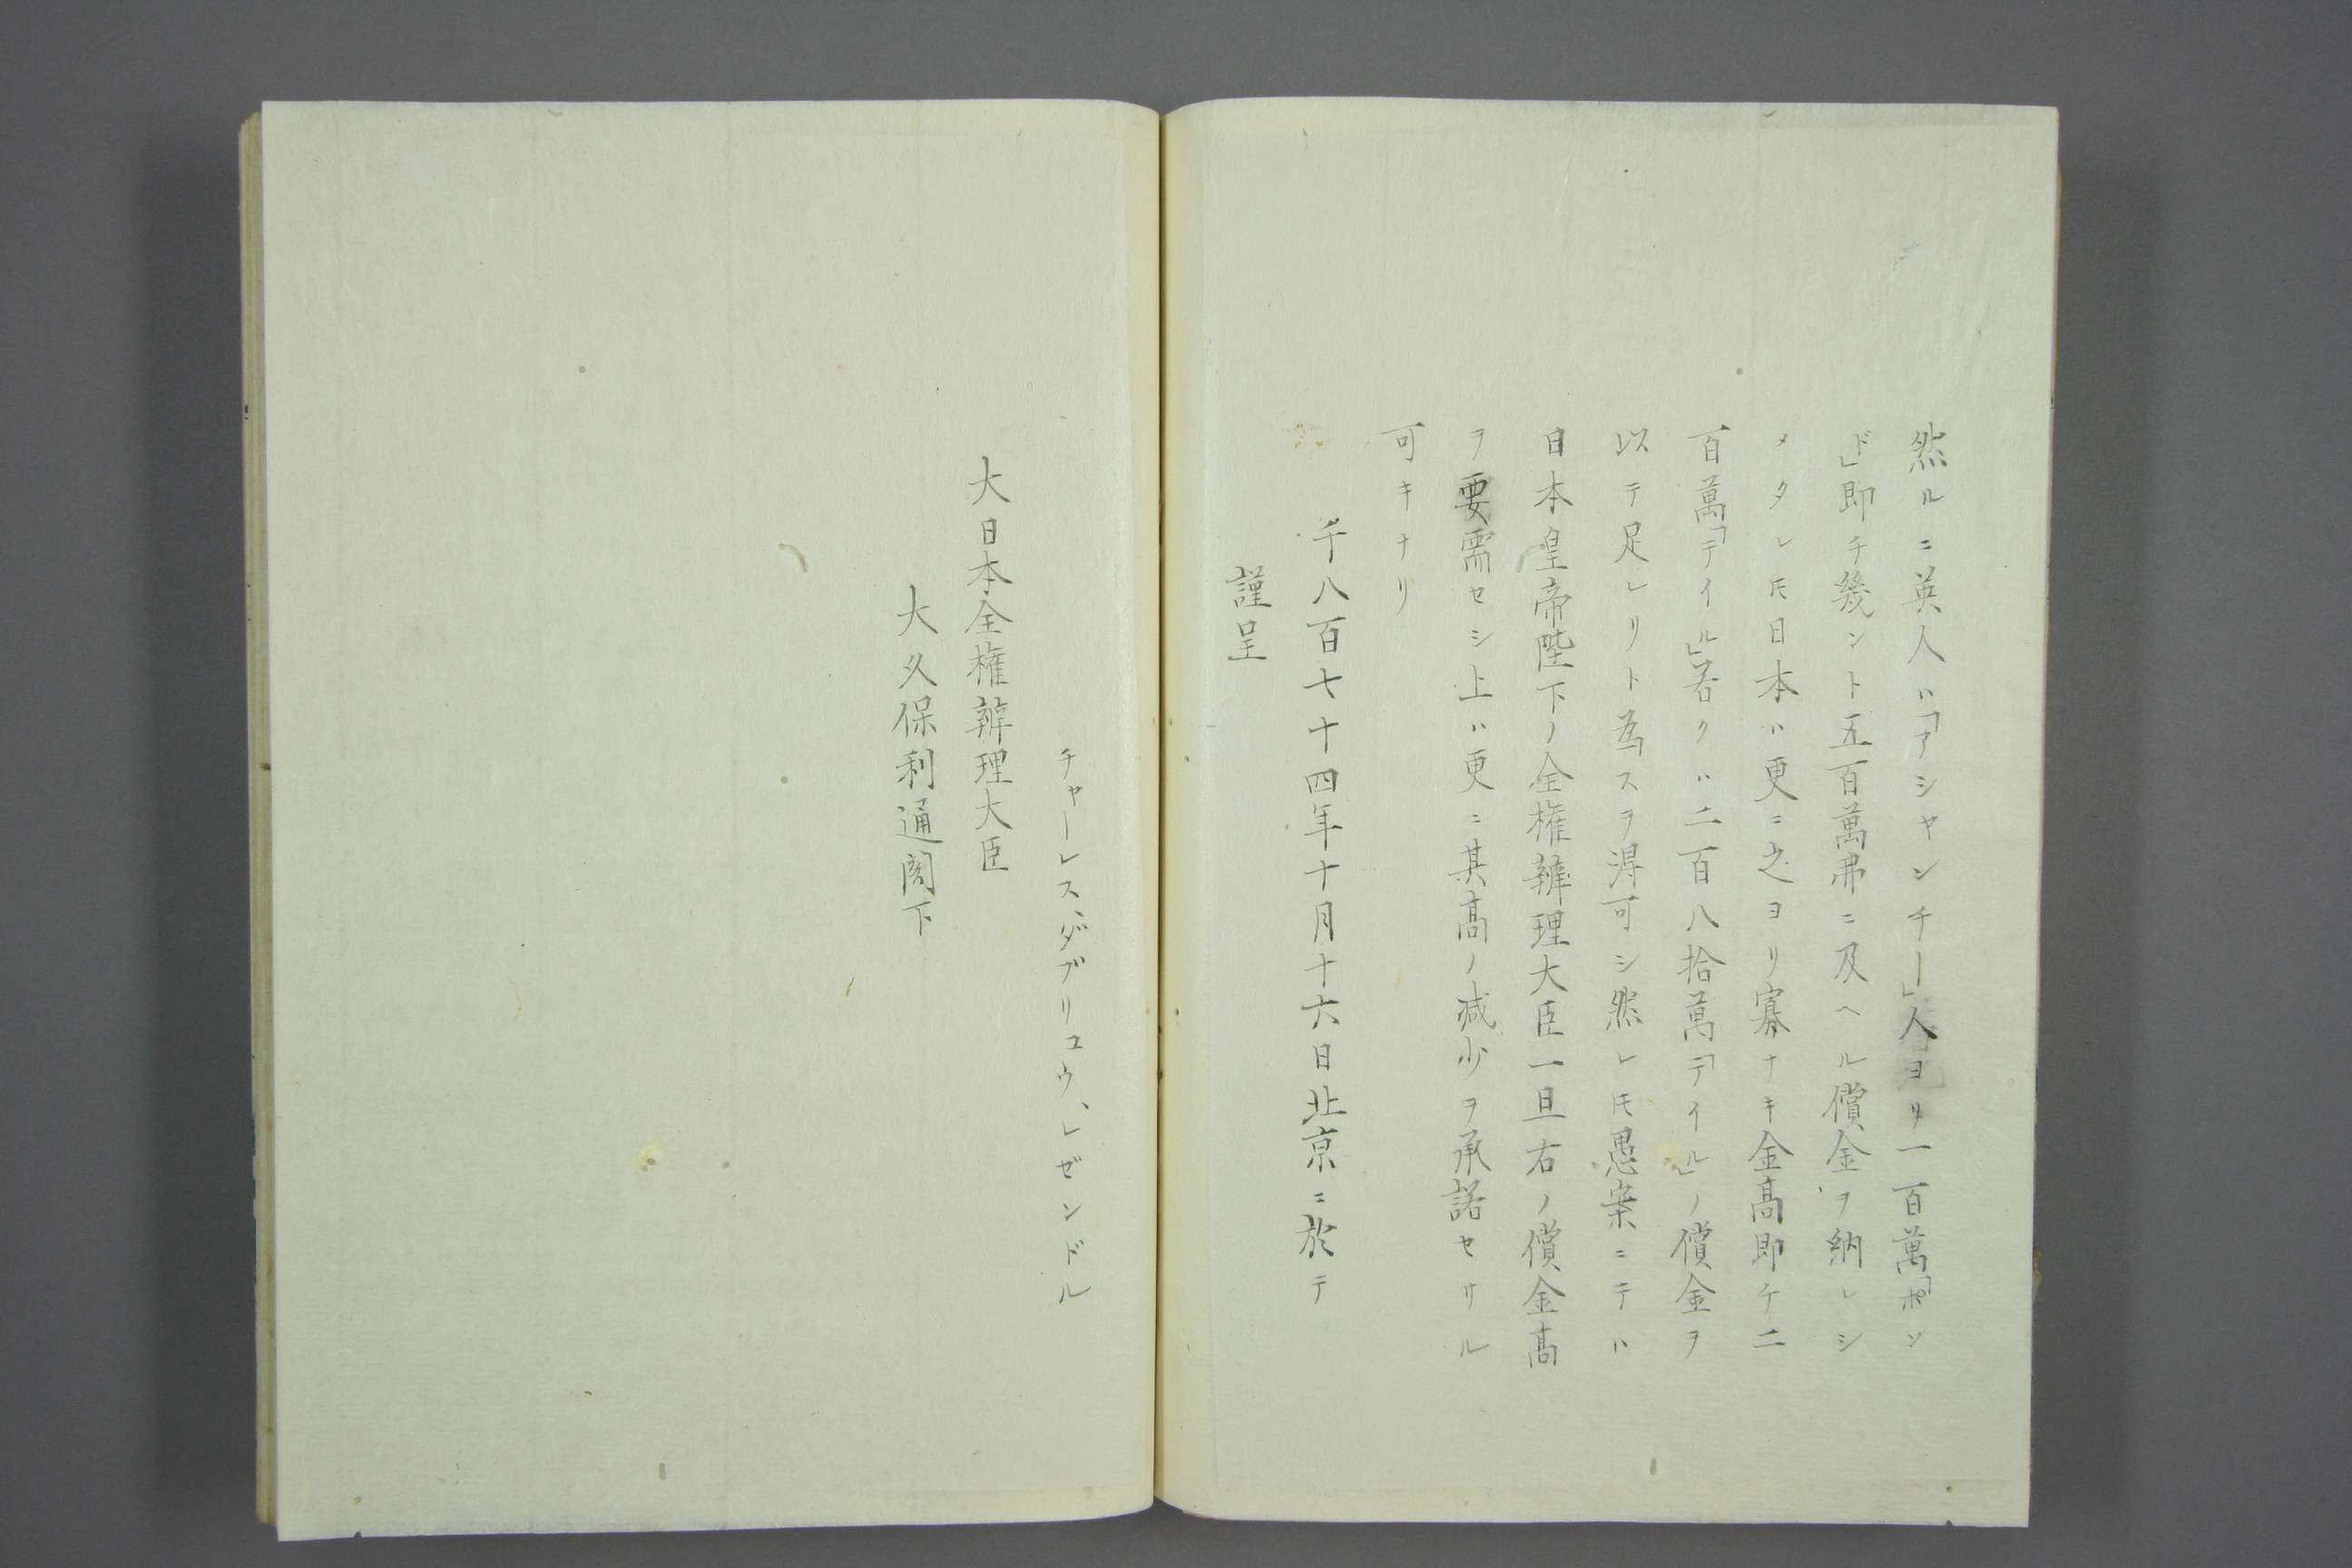 然ルニ英人ハ「アシャンチー」人ヨリ一百萬「ポン
ド」即チ幾ント五百萬弗ニ及ヘル償金ヲ納レシ
メタレ𪜈日本ハ更ニ之ヨリ寡ナキ金髙即チ二
百萬「テイル」若クハ二百八拾萬「テイル」ノ償金ヲ
以テ足レリト為スヲ得可シ然レ𪜈愚案ニテハ
日本皇帝陛下ノ全権辨理大臣一旦右ノ償金髙
ヲ要需セシ上ハ更ニ其髙ノ減少ヲ承諾セサル
可キナリ
千八百七十四年十月十六日北京ニ於テ
謹呈
チャーレス、ダブリュウ、レゼンドル
大日本全権辨理大臣
大久保利通閣下